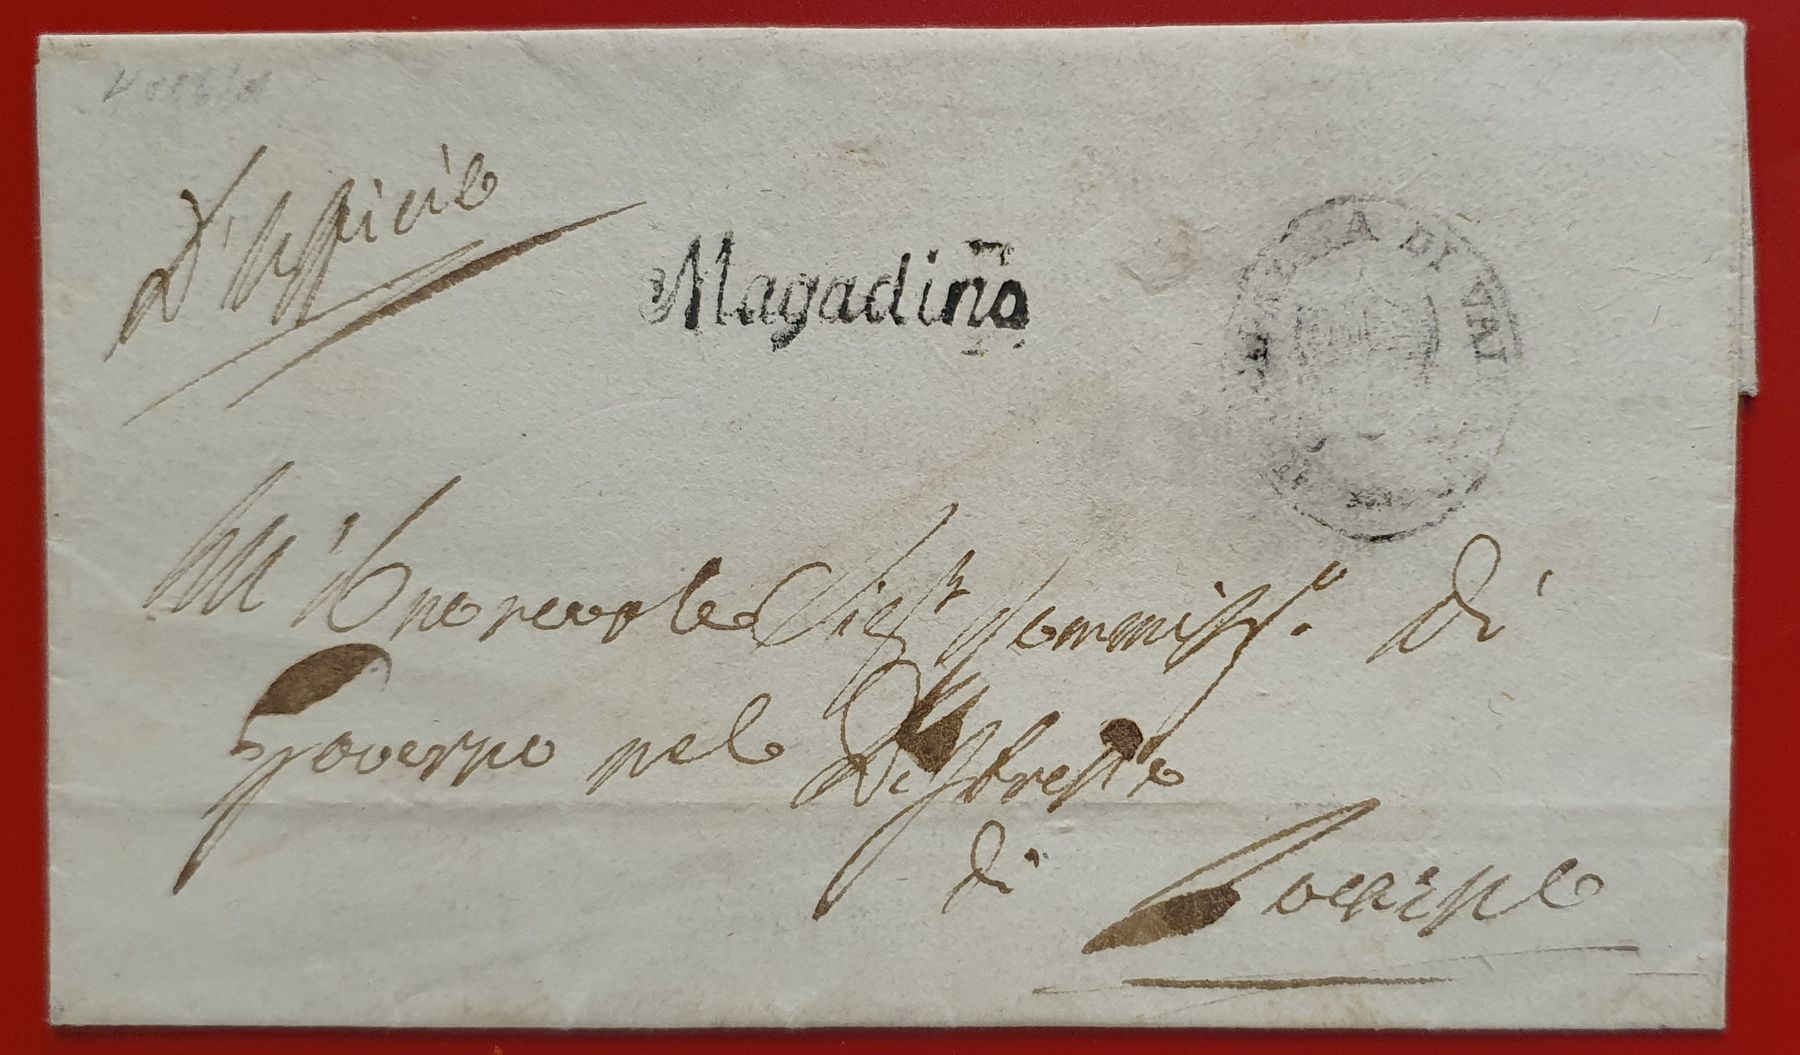 D'Ufficio
Magadino
DI VAI
All' Onorevole Sigr Commisso. di
Governo nel Distretto
di Locarno